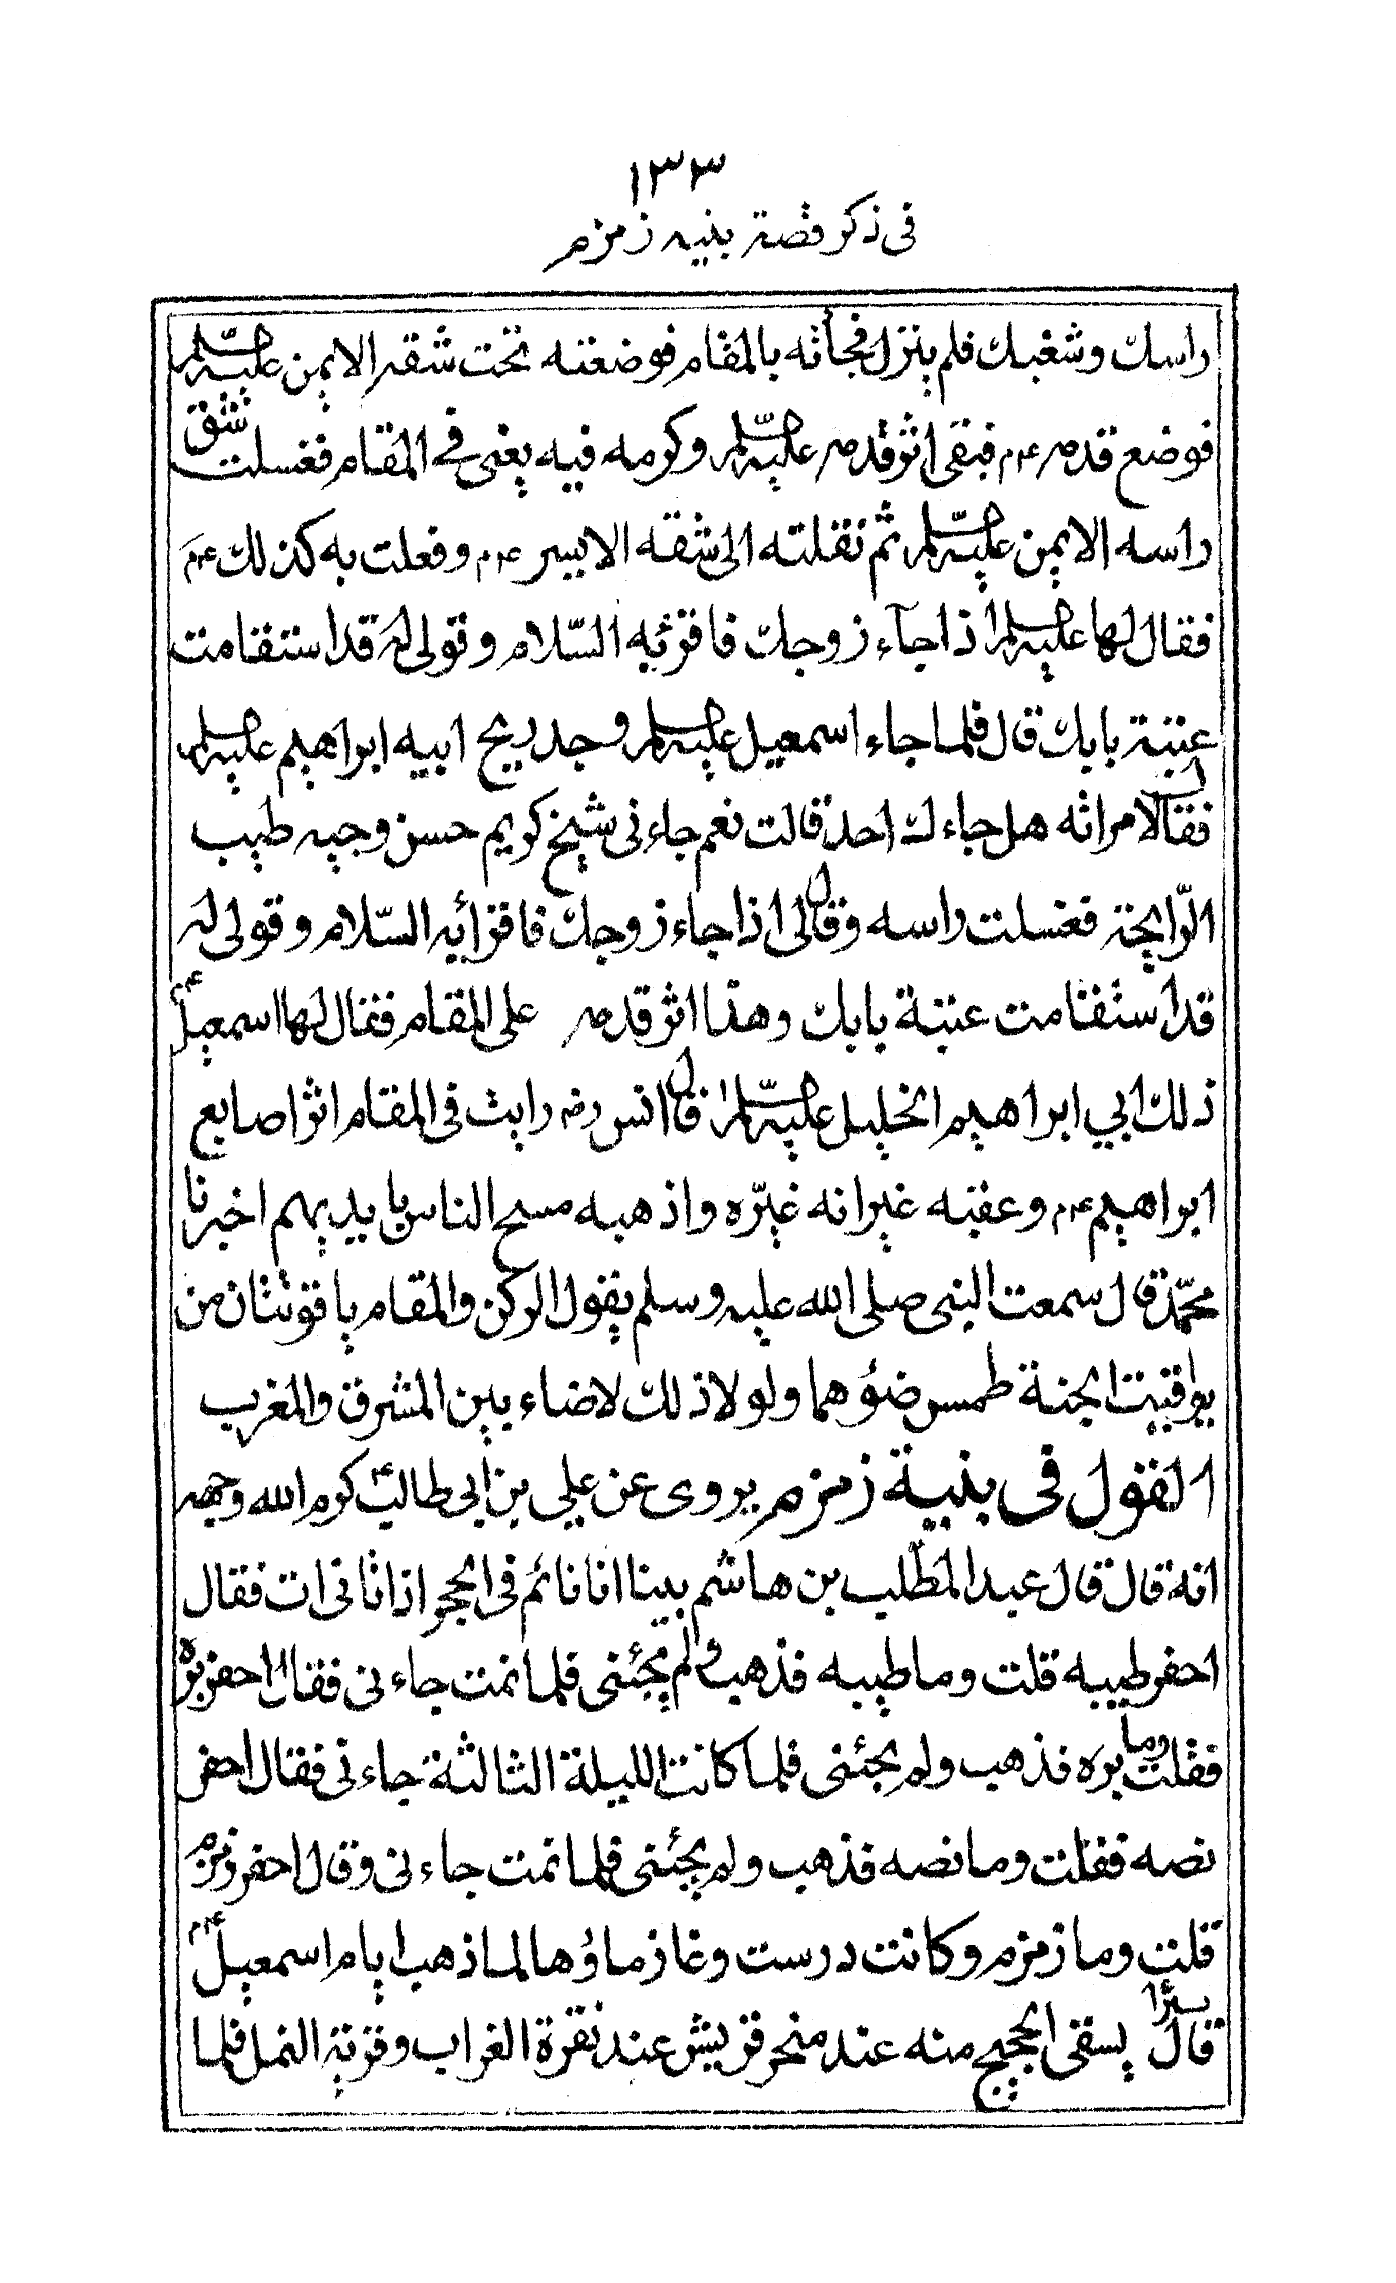 ١٣٣
فى ذكر قصة بنيه زمزم
راسك وشغبك فلم ينزل فجأته بالمقام فوضعته تحت شقه الايمن عليه السلم
فوضع قدمه ٤م فبقى اثر قدمه عليه السلم وكرمه فيه يعنى فى المقام فغسلت شق
راسه الايمن عليه السلم ثم نقلته الى شقه الايسر ٤م وفعلت به كذلك ٤م
فقال لها عليه السلم اذا جآء زوجك فاقرئيه السّلام وقولى له قد استقامت
عتبة بابك قال فلما جاء اسمعيل عليه السلم وجد ريح ابيه ابراهيم عليه السلم
فقال لامراته هل جاءك احد قالت نعم جاءنى شيخ كريم حسن وجيه طيب
الرّايحة فغسلت راسه وقال لى اذا جاء زوجك فاقرأيه السّلام وقولى له
قد استقامت عتبة بابك وهذا اثر قدمه على المقام فقال لها اسمعيل ٤م
ذلك ابي ابراهيم الخليل عليه السلم قال انس رضه رايت فى المقام اثر اصابع
ابراهيم ٤م وعقبه غير انه غيّره واذهبه مسح الناس بايديهم اخبرنا
محمّد قال سمعت النبى صلى الله عليه وسلم يقول الركن والمقام ياقوتتان من
يواقيت الجنة طمس ضؤهما ولولا ذلك لاضاء بين المشرق والمغرب
القول فى بنية زمزم يروى عن علي بن ابى طالب كرم الله وجهه
انه قال قال عبد المطّلب بن هاشم بينا انا نائم فى الحجر اذ اتانى ات فقال
احفر طيبه قلت وما طيبه فذهب ولم يجئنى فلما نمت جاءنى فقال احفر بره
فقلت وما بره فذهب ولم يجئنى فلما كانت الليلة الثالثة جاءنى فقال احفر
نصه فقلت وما نصه فذهب ولم يجئنى فلما نمت جاءنى وقال احفر زمزم
قلت وما زمزم وكانت درست وغاز ماؤها لما ذهب ايام اسمعيل ٤م
قال بئرا يسقى الحجيج منه عند منحر قريش عند نقرة الغراب وقرية النمل فلما